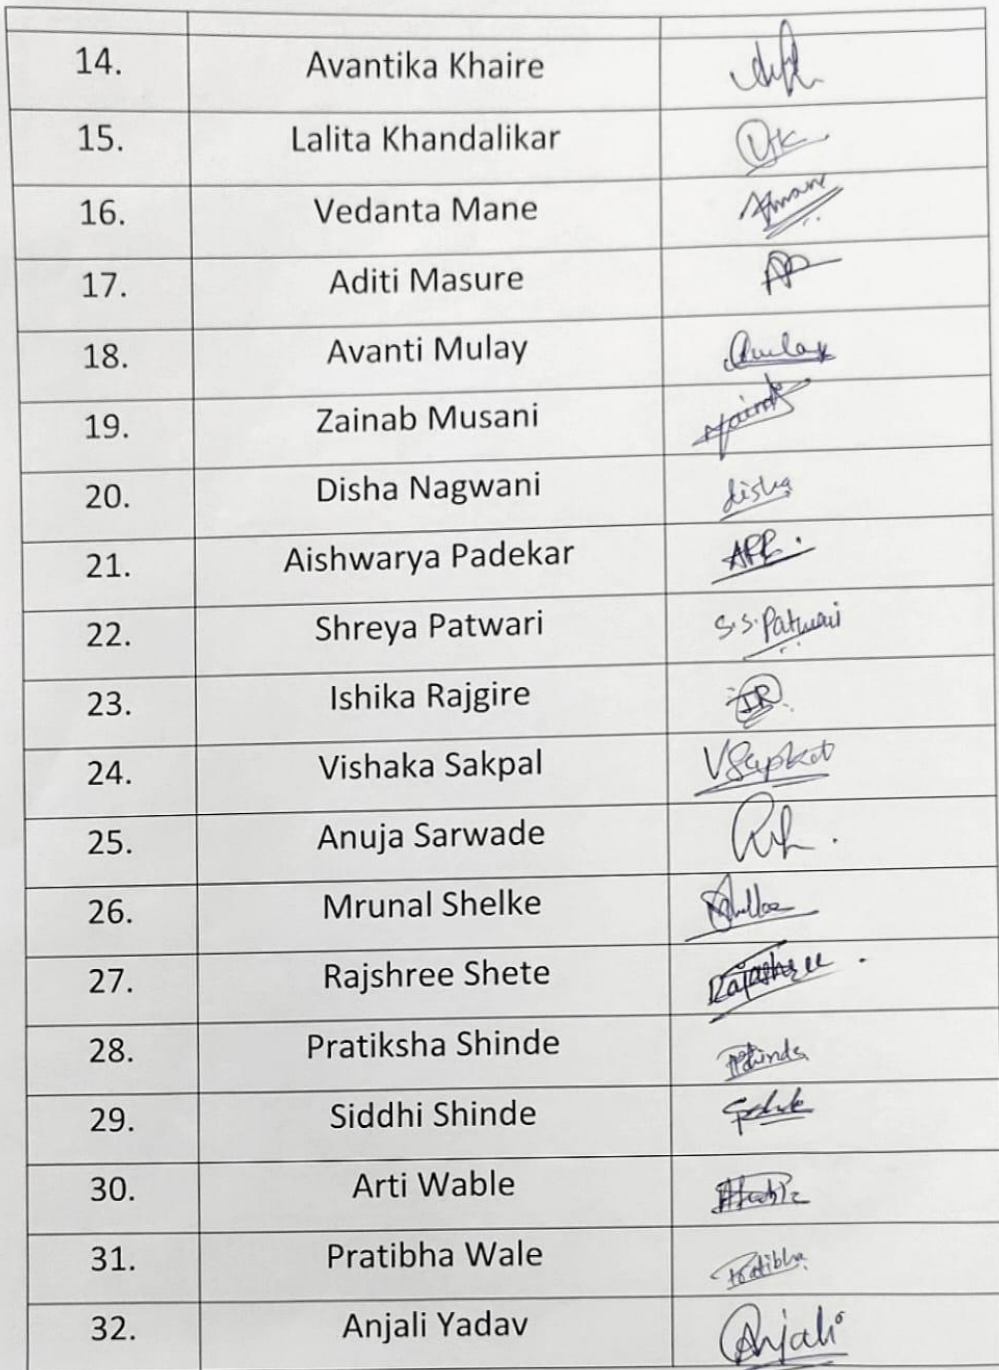 14. Avantika Khaire
15. Lalita Khandalikar
16. Vedanta Mane
17. Aditi Masure
18. Avanti Mulay
19. Zainab Musani
20. Disha Nagwani disha
21. Aishwarya Padekar
22. Shreya Patwari S.S.Patwari
23. Ishika Rajgire IR
24. Vishaka Sakpal
25. Anuja Sarwade
26. Mrunal Shelke
27. Rajshree Shete
28. Pratiksha Shinde
29. Siddhi Shinde
30. Arti Wable
31. Pratibha Wale Pratibha
32. Anjali Yadav Anjali